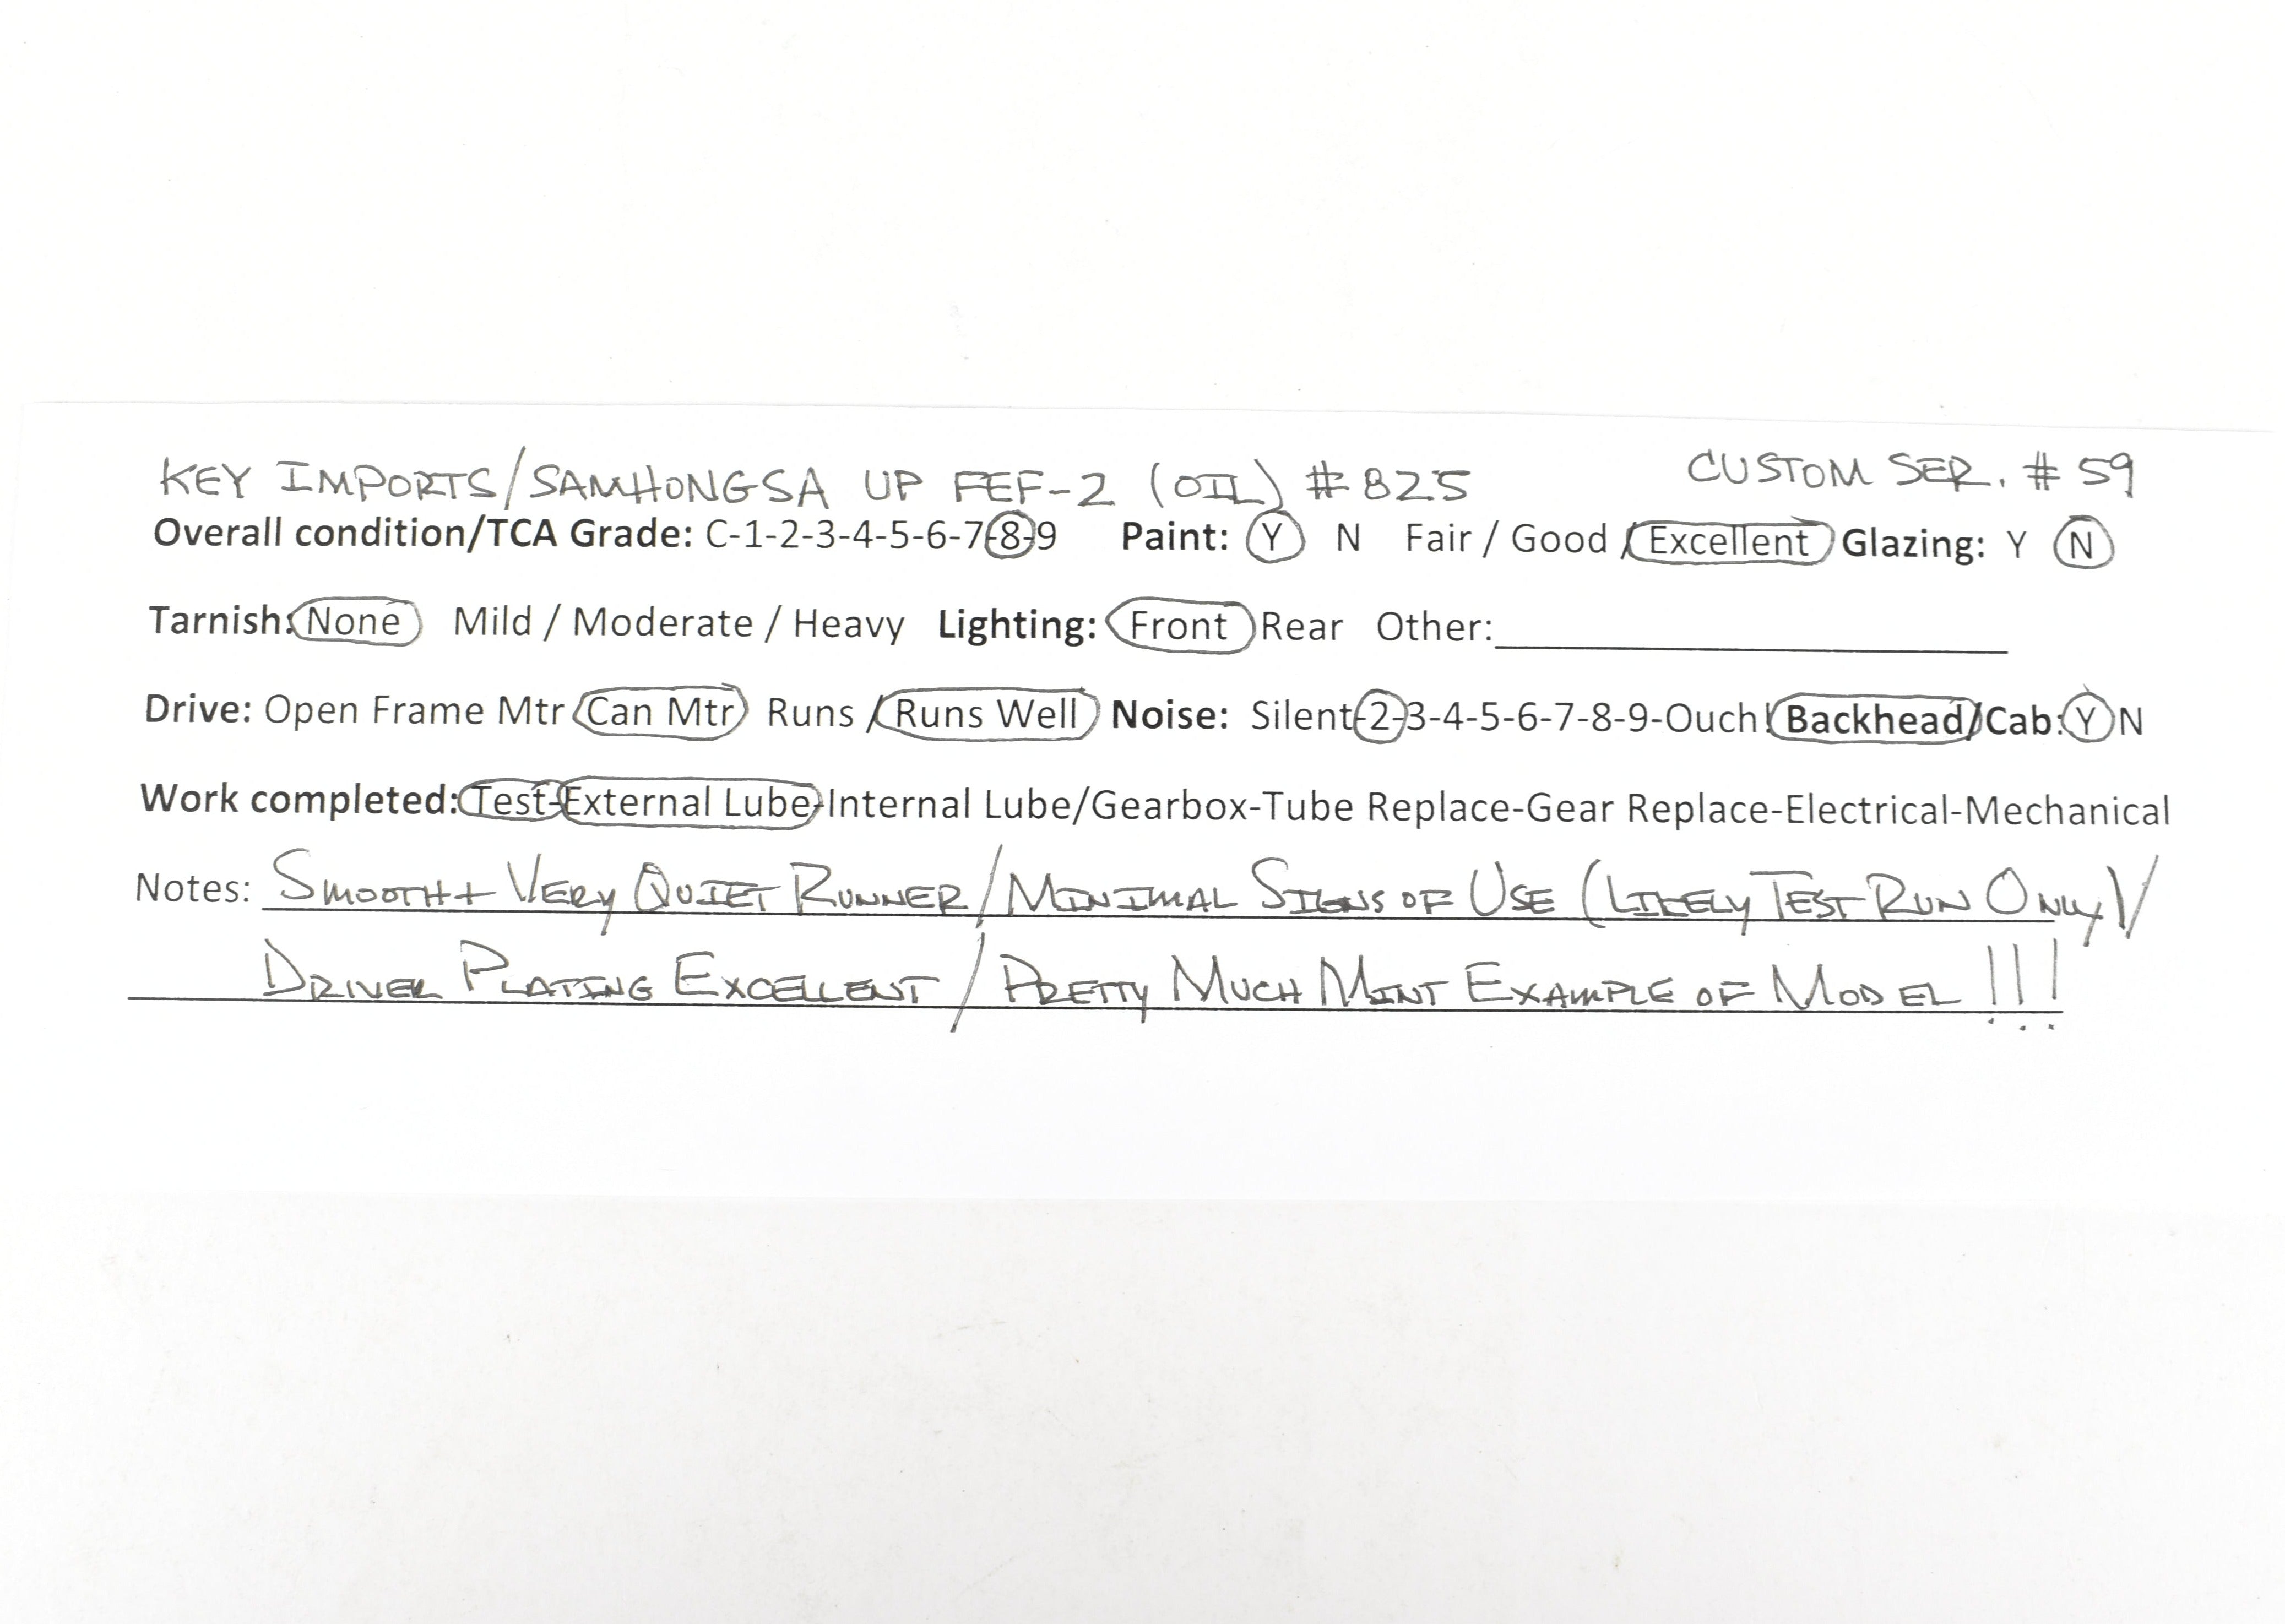 KEY IMPORTS/SAMHONGSA UP FEF-2 (OIL) #825 CUSTOM SER. #59
Overall condition/TCA Grade: C-1-2-3-4-5-6-7-8-9 Paint: Y N Fair / Good / Excellent Glazing: Y N
Tarnish: None Mild / Moderate / Heavy Lighting: Front Rear Other:
Drive: Open Frame Mtr Can Mtr Runs / Runs Well Noise: Silent-2-3-4-5-6-7-8-9-Ouch! Backhead/Cab: Y N
Work completed: Test-External Lube-Internal Lube/Gearbox-Tube Replace-Gear Replace-Electrical-Mechanical
Notes: SMOOTH + VERY QUIET RUNNER/MINIMAL SIGNS OF USE (LIKELY TEST RUN ONLY)/
DRIVER PLATING EXCELLENT/PRETTY MUCH MINT EXAMPLE OF MODEL!!!